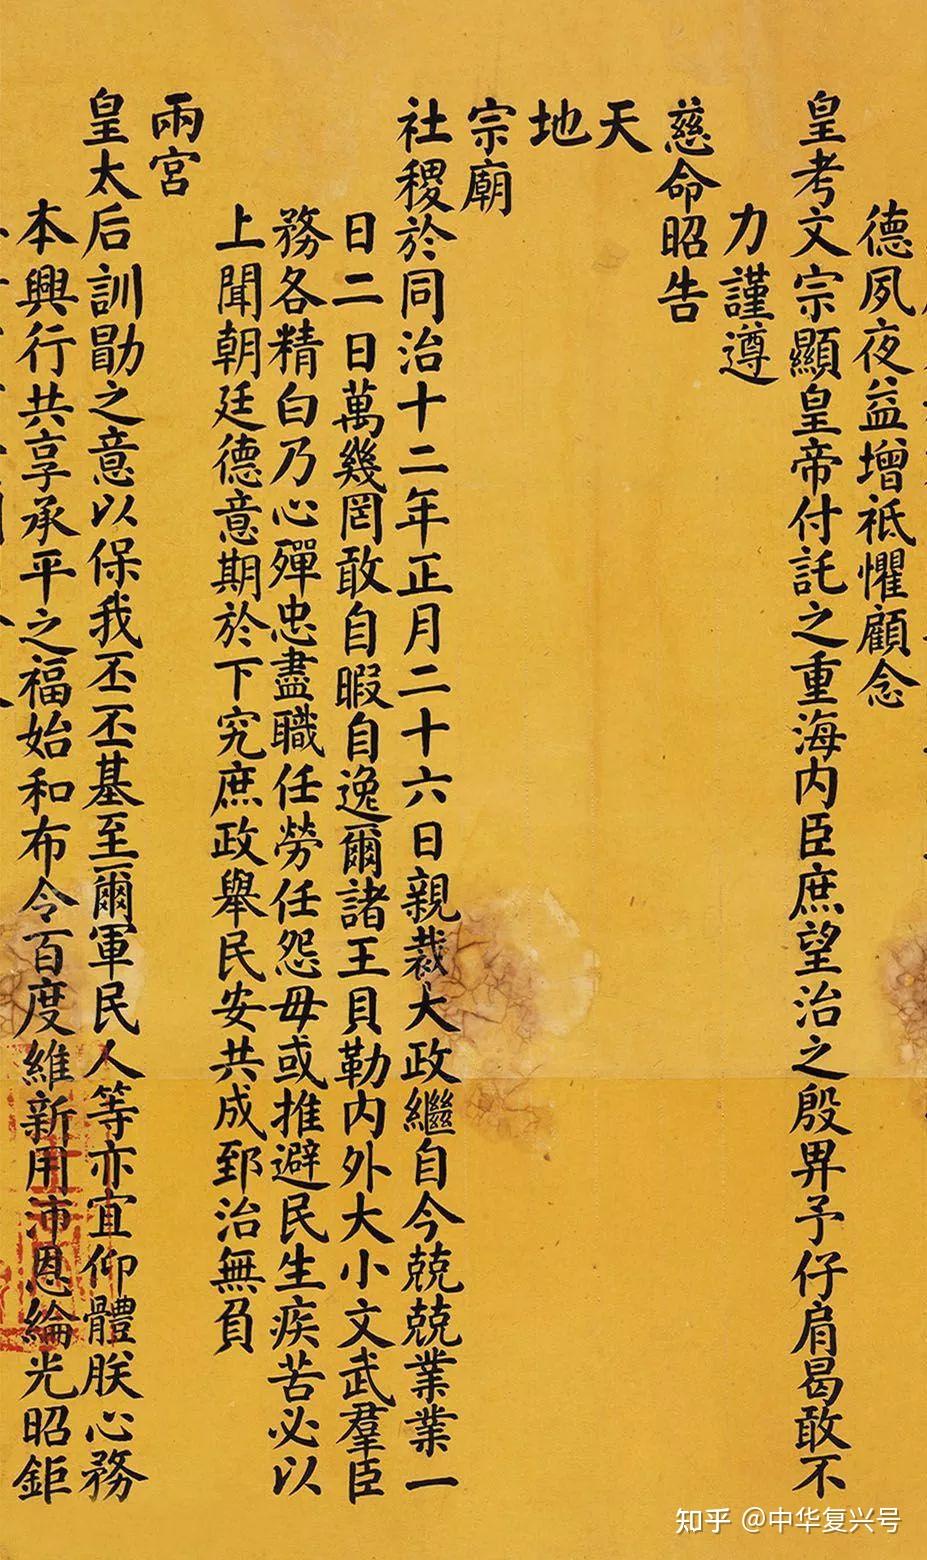 德夙夜益增祗懼顧念
皇考文宗顯皇帝付託之重海内臣庶望治之殷畀予仔肩曷敢不
力謹遵
慈命昭告
天
地
宗廟
社稷於同治十二年正月二十六日親裁大政繼自今兢兢業業一
日二日萬幾罔敢自暇自逸爾諸王貝勒内外大小文武羣臣
務各精白乃心殫忠盡職任勞任怨毋或推避民生疾苦必以
上聞朝廷德意期於下究庶政舉民安共成郅治無負
兩宮
皇太后訓勖之意以保我丕丕基至爾軍民人等亦宜仰體朕心務
本興行共享承平之福始和布令百度維新用沛恩綸光昭鉅
知乎 @中华复兴号